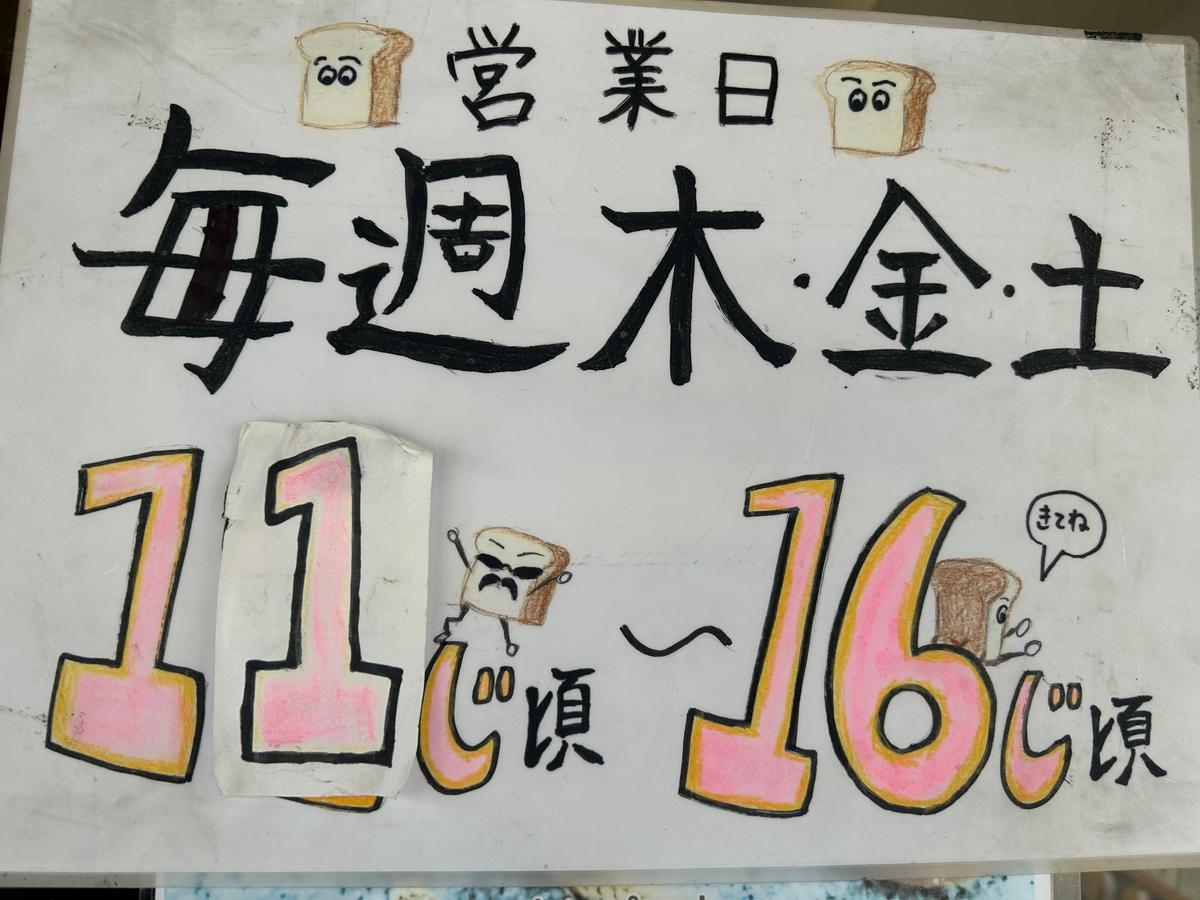 営業日
毎週木・金・土
11じ頃〜16じ頃
きてね